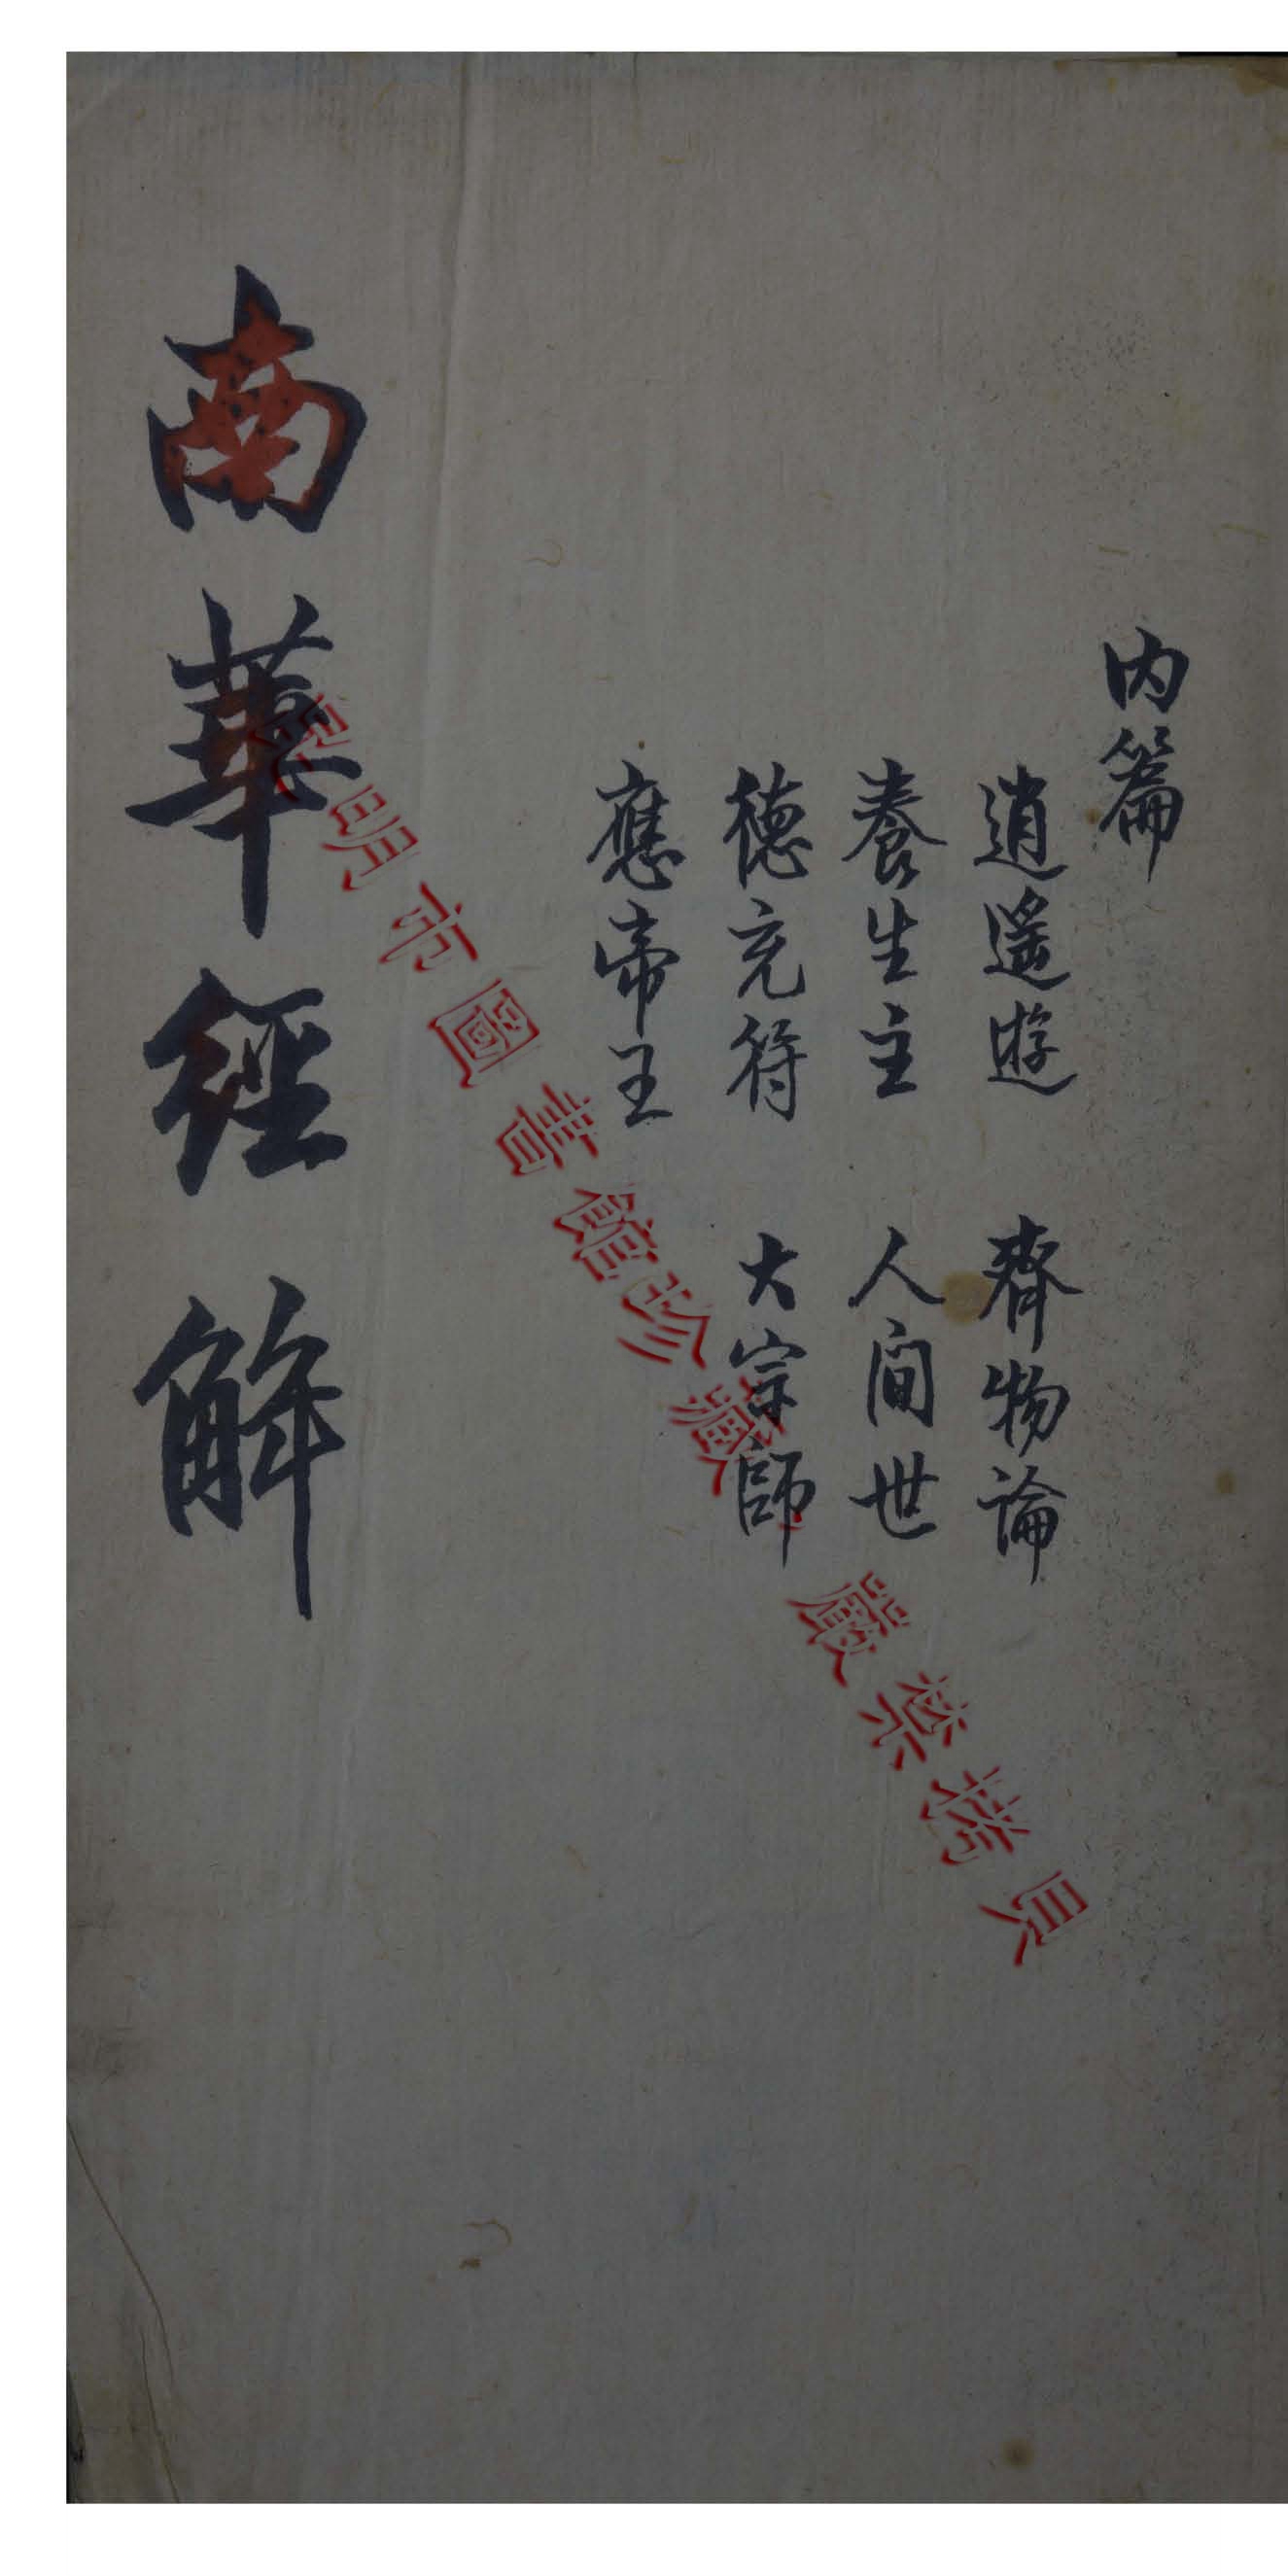 内篇
逍遙遊　齊物論
養生主　人間世
德充符　大宗師
應帝王
南華經解
昆明市圖書館珍藏 嚴禁拷貝